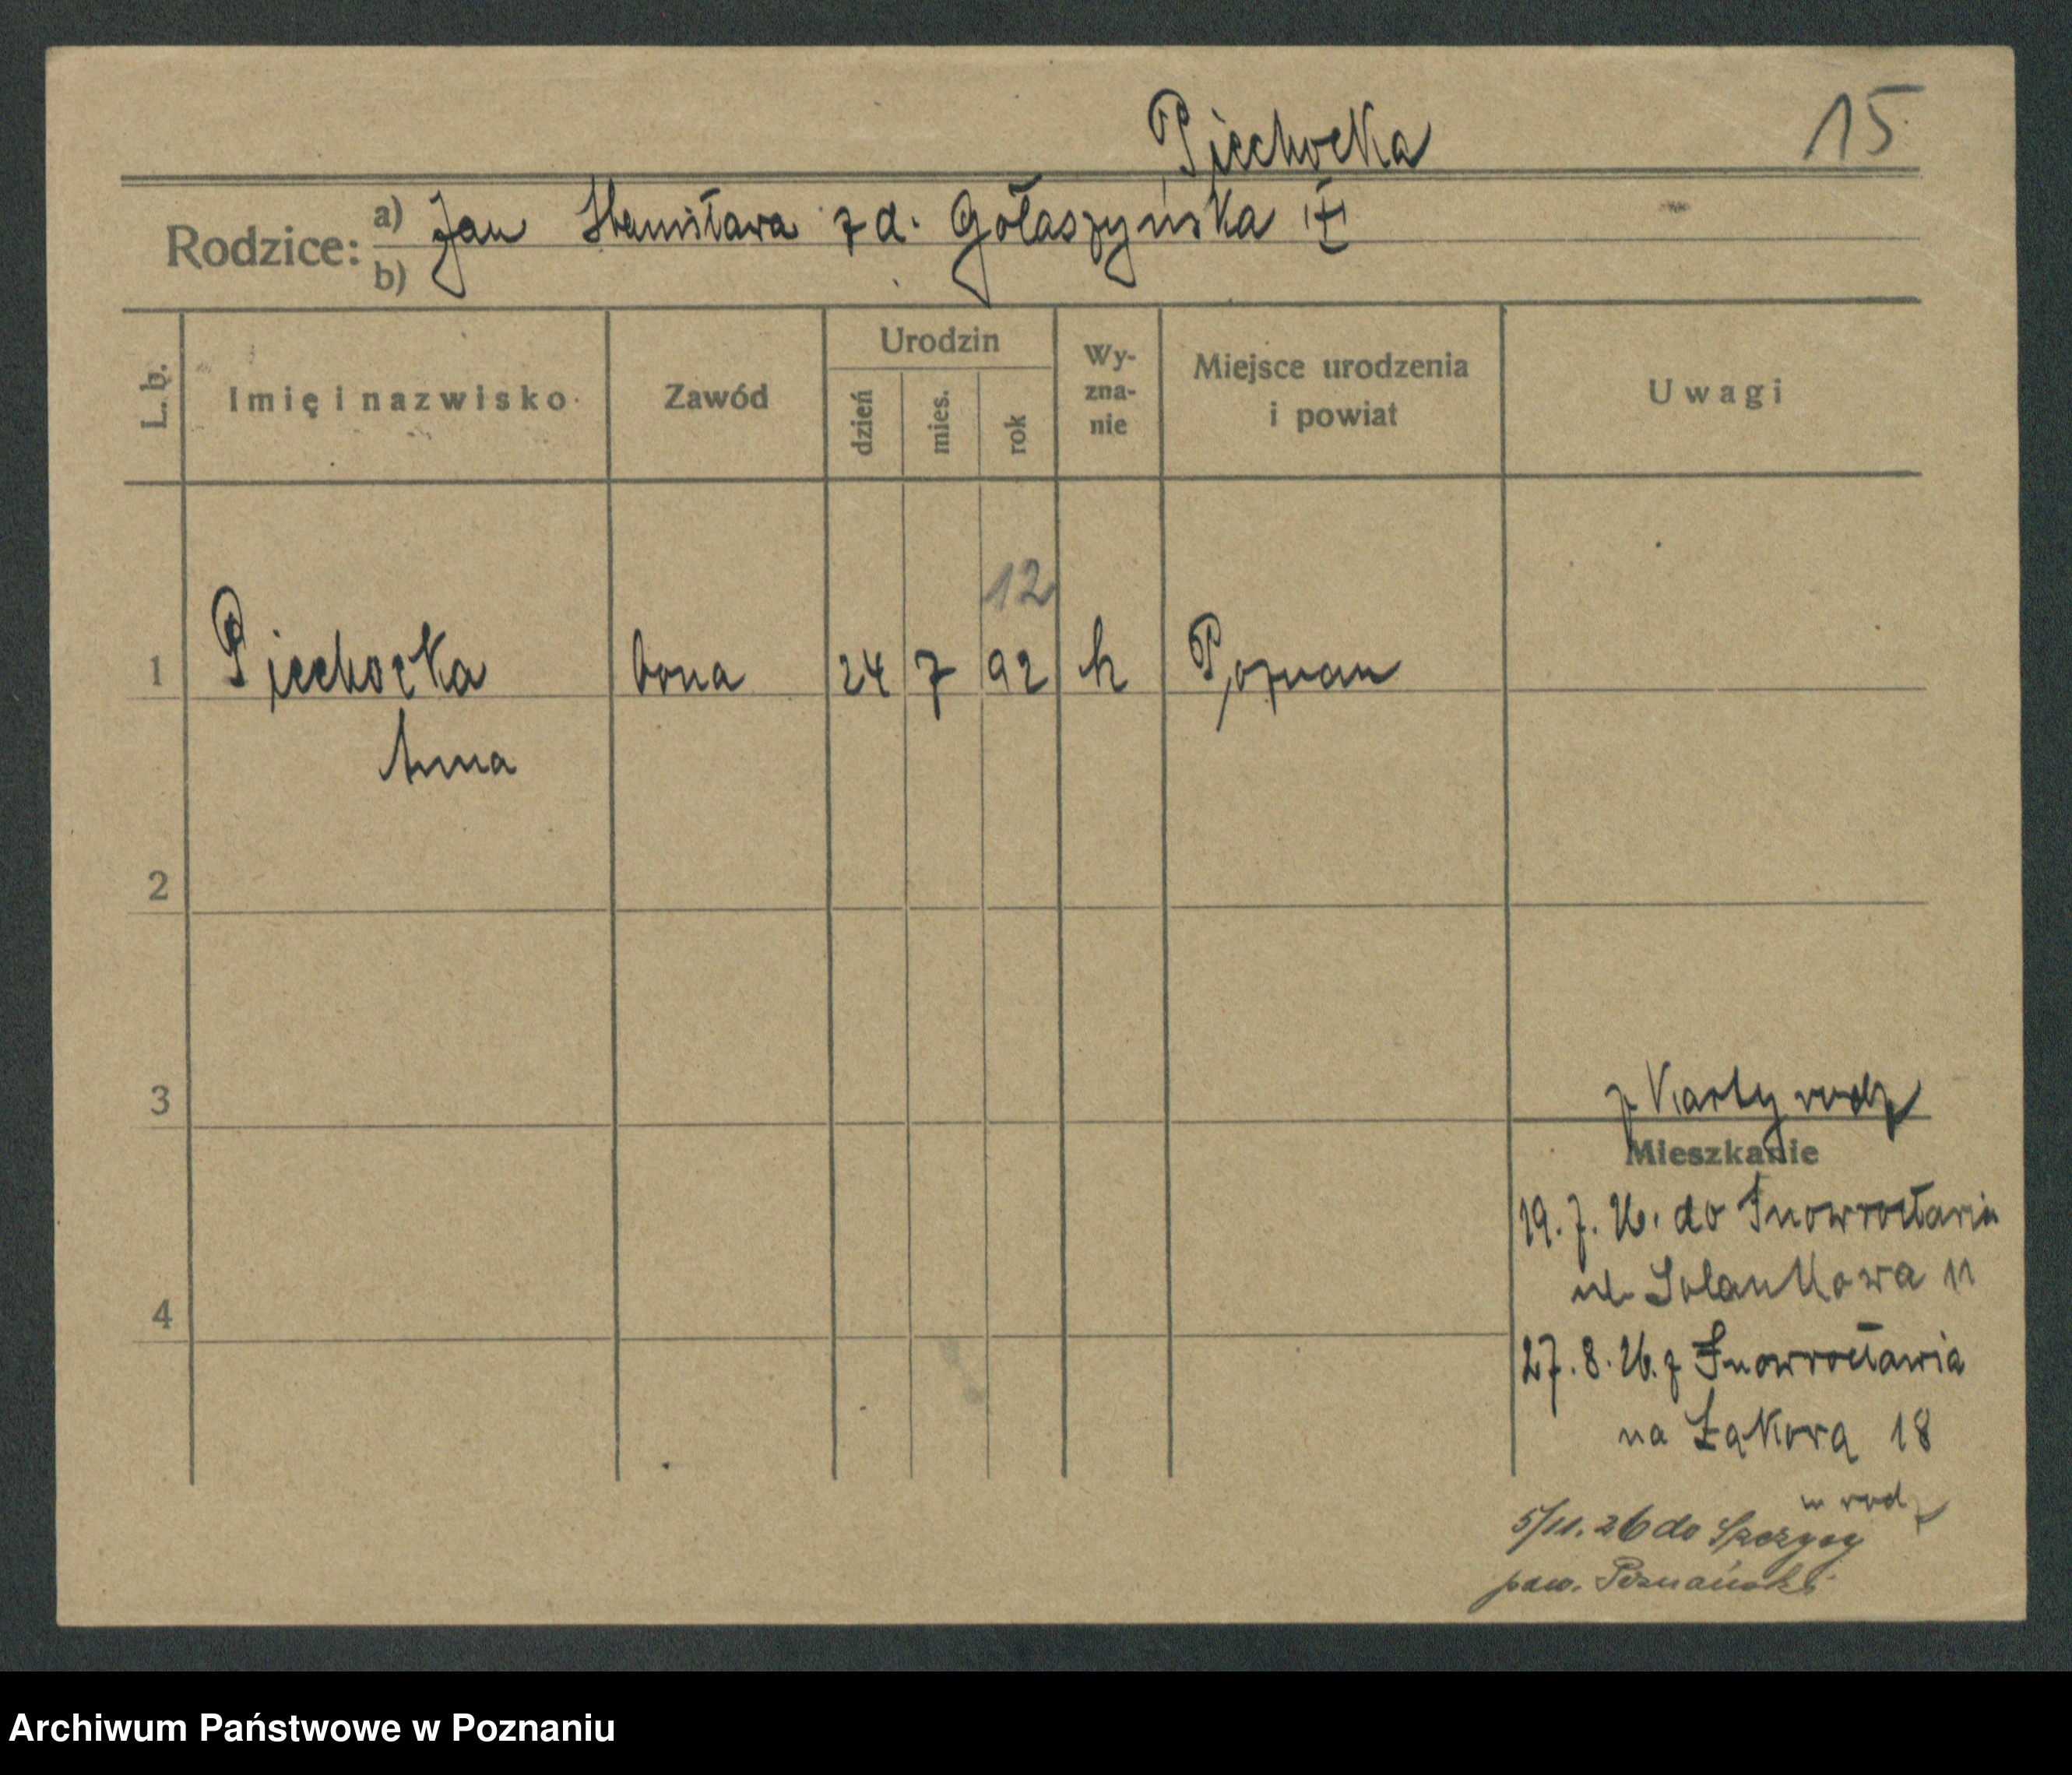 Piechocka
15
Rodzice: a) Jan Stanisława z d. Gołaszyńska
b)
L. b.
Imię i nazwisko
Zawód
Urodzin
dzień
mies.
rok
Wy-
zna-
nie
Miejsce urodzenia
i powiat
Uwagi
12
1 Piechocka bona 24 7 92 k Poznan
Anna
2
3
z Karty rodz
Mieszkanie
19.7.26. do Inowrocławia
ul. Solankowa 11
4
27.8.26. z Inowrocławia
na Łąkową 18
w rodz
5/11. 26 do
pow. Poznański
Archiwum Państwowe w Poznaniu